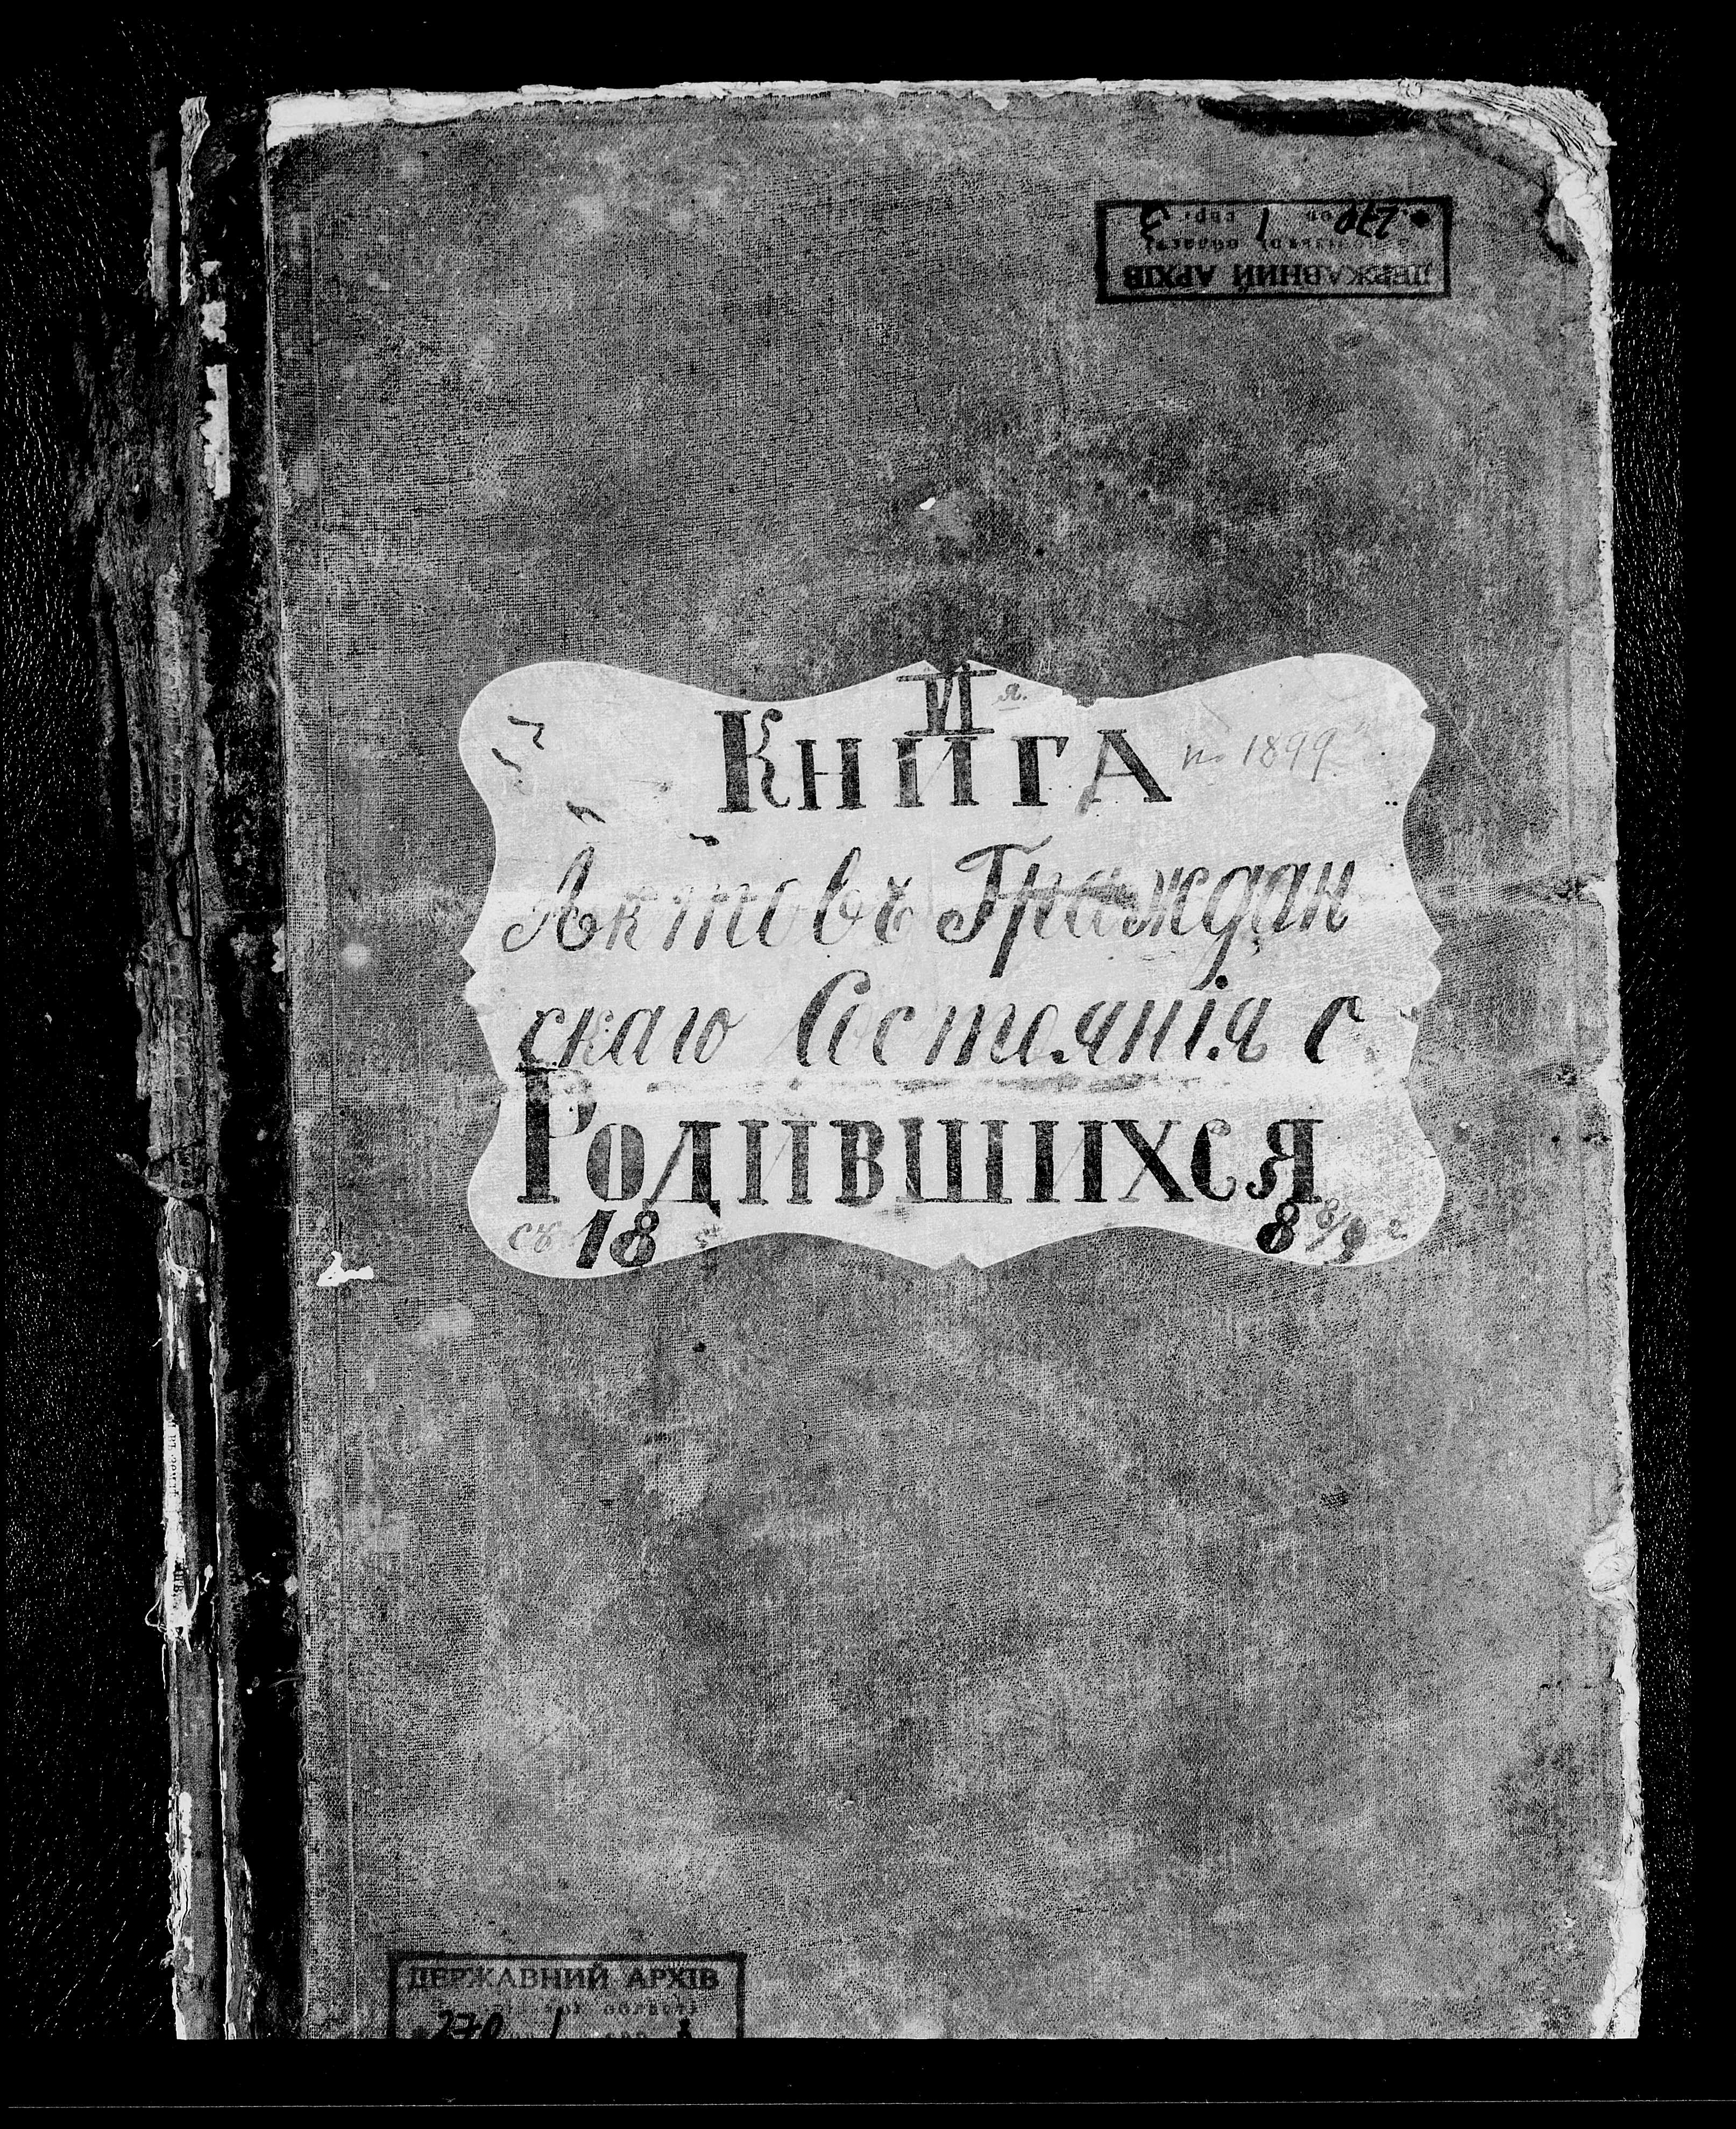 ДЕРЖАВНИЙ АРХІВ
270 1
II я.
Книга по 1899
Актовъ Граждан
скаго Состоянія с
Родившихся
съ 18 8 8/9 г
ДЕРЖАВНИЙ АРХІВ
270 1